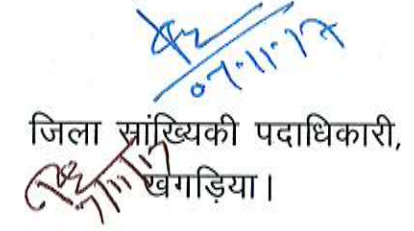 07.11.17
जिला सांख्यिकी पदाधिकारी,
खगड़िया।
7/11/17